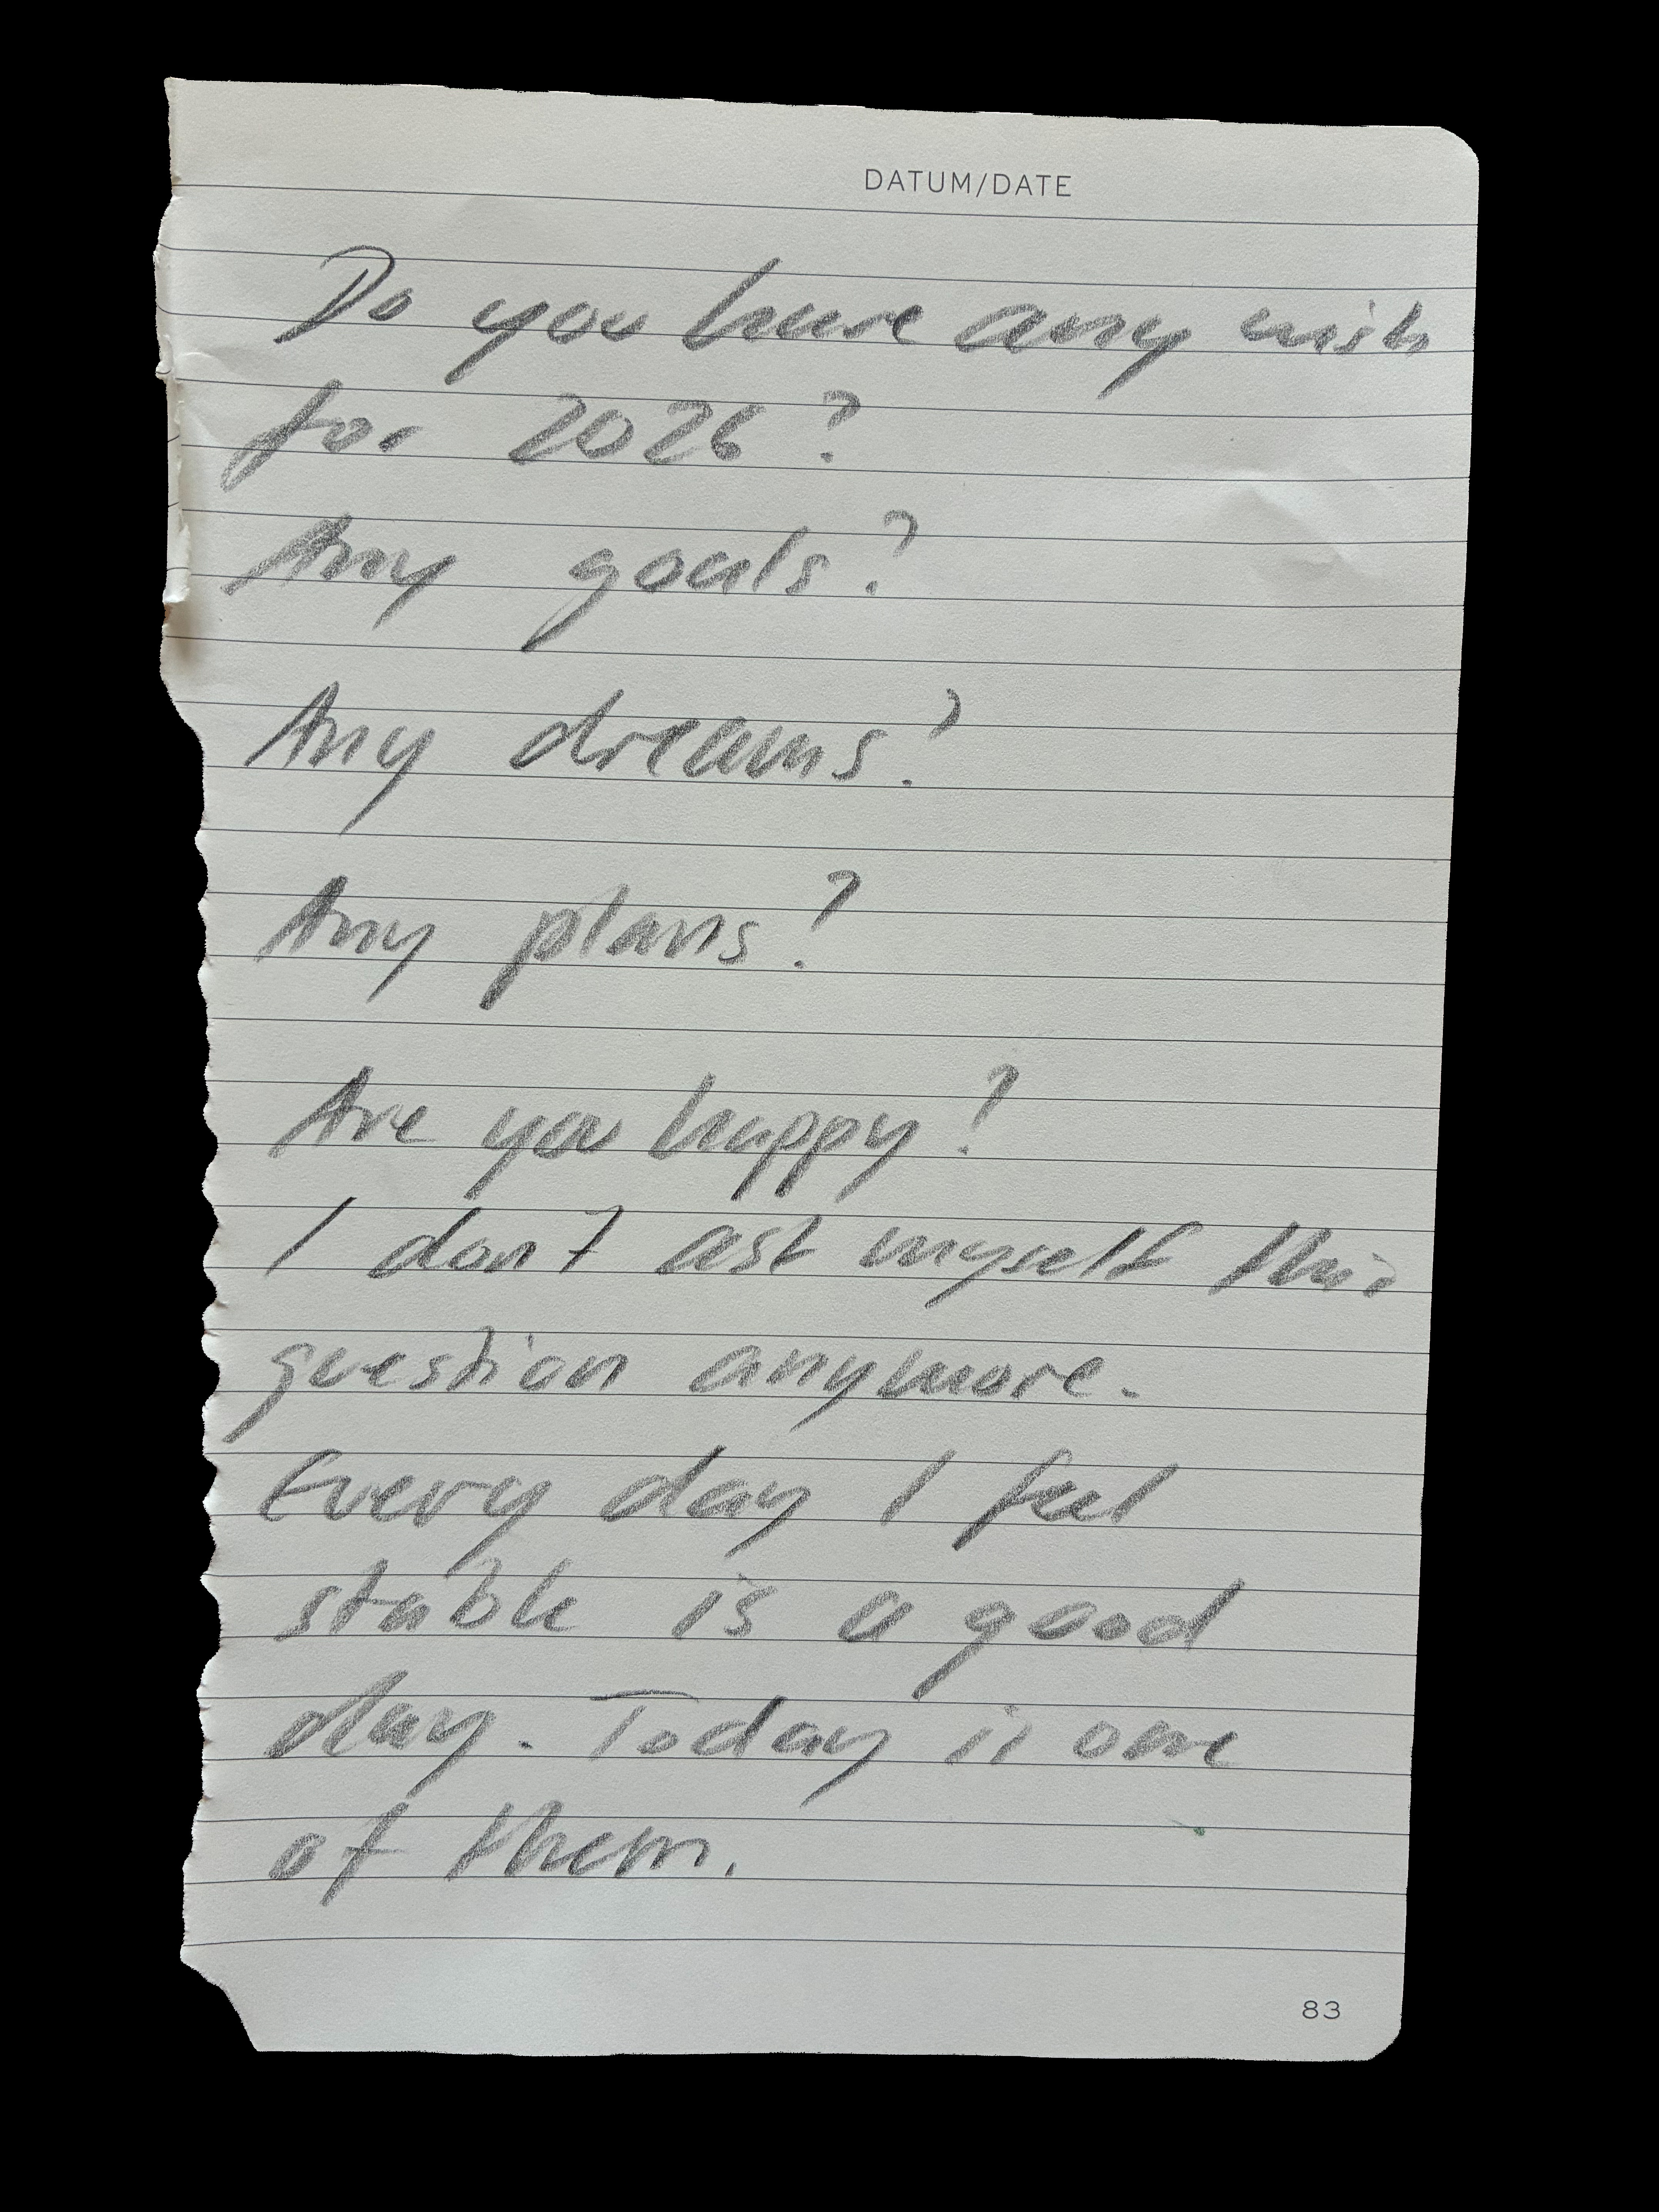 DATUM/DATE
Do you have any wish
for 2026?
Any goals?
Any dreams?
Any plans?
Are you happy?
I don't ask myself this
question anymore.
Every day I feel
stable is a good
day. Today is one
of them.
83